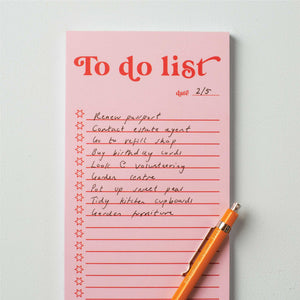 To do list
date: 2/5
Renew passport
Contact estate agent
Go to refill shop
Buy birthday cards
Look @ volunteering
Garden centre
Pot up sweet peas
Tidy kitchen cupboards
Garden furniture